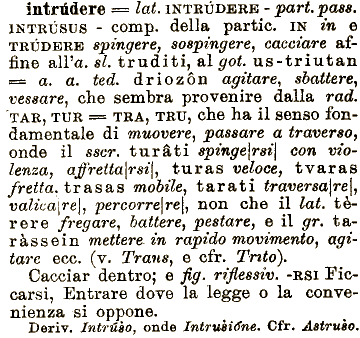 intrúdere = lat. INTRÚDERE - part. pass.
INTRÚSUS - comp. della partic. IN in e
TRÚDERE spingere, sospingere, cacciare af-
fine all'a. sl. truditi, al got. us-triutan
= a. a. ted. driozôn agitare, sbattere,
vessare, che sembra provenire dalla rad.
TAR, TUR = TRA, TRU, che ha il senso fon-
damentale di muovere, passare a traverso,
onde il sscr. turâti spinge|rsi| con vio-
lenza, affretta|rsi|, turas veloce, tvaras
fretta. trasas mobile, tarati traversa|re|,
valica|re|, percorre|re|, non che il lat. tè-
rere fregare, battere, pestare, e il gr. ta-
ràssein mettere in rapido movimento, agi-
tare ecc. (v. Trans, e cfr. Trito).
Cacciar dentro; e fig. riflessiv. -RSI Fic-
carsi, Entrare dove la legge o la conve-
nienza si oppone.
Deriv. Intrúṡo, onde Intruṡióne. Cfr. Astruṡo.